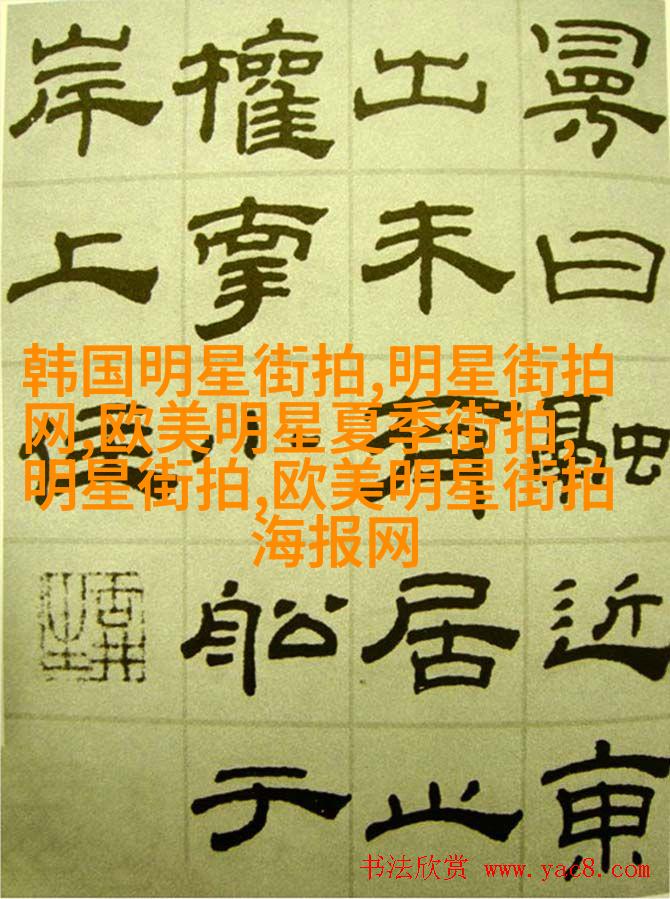 曰融近東
出未有居止
權牽小船于
岸上住
韩国明星街拍,明星街拍
网,欧美明星夏季街拍,
明星街拍,欧美明星街拍
海报网
书法欣赏 www.yac8.com